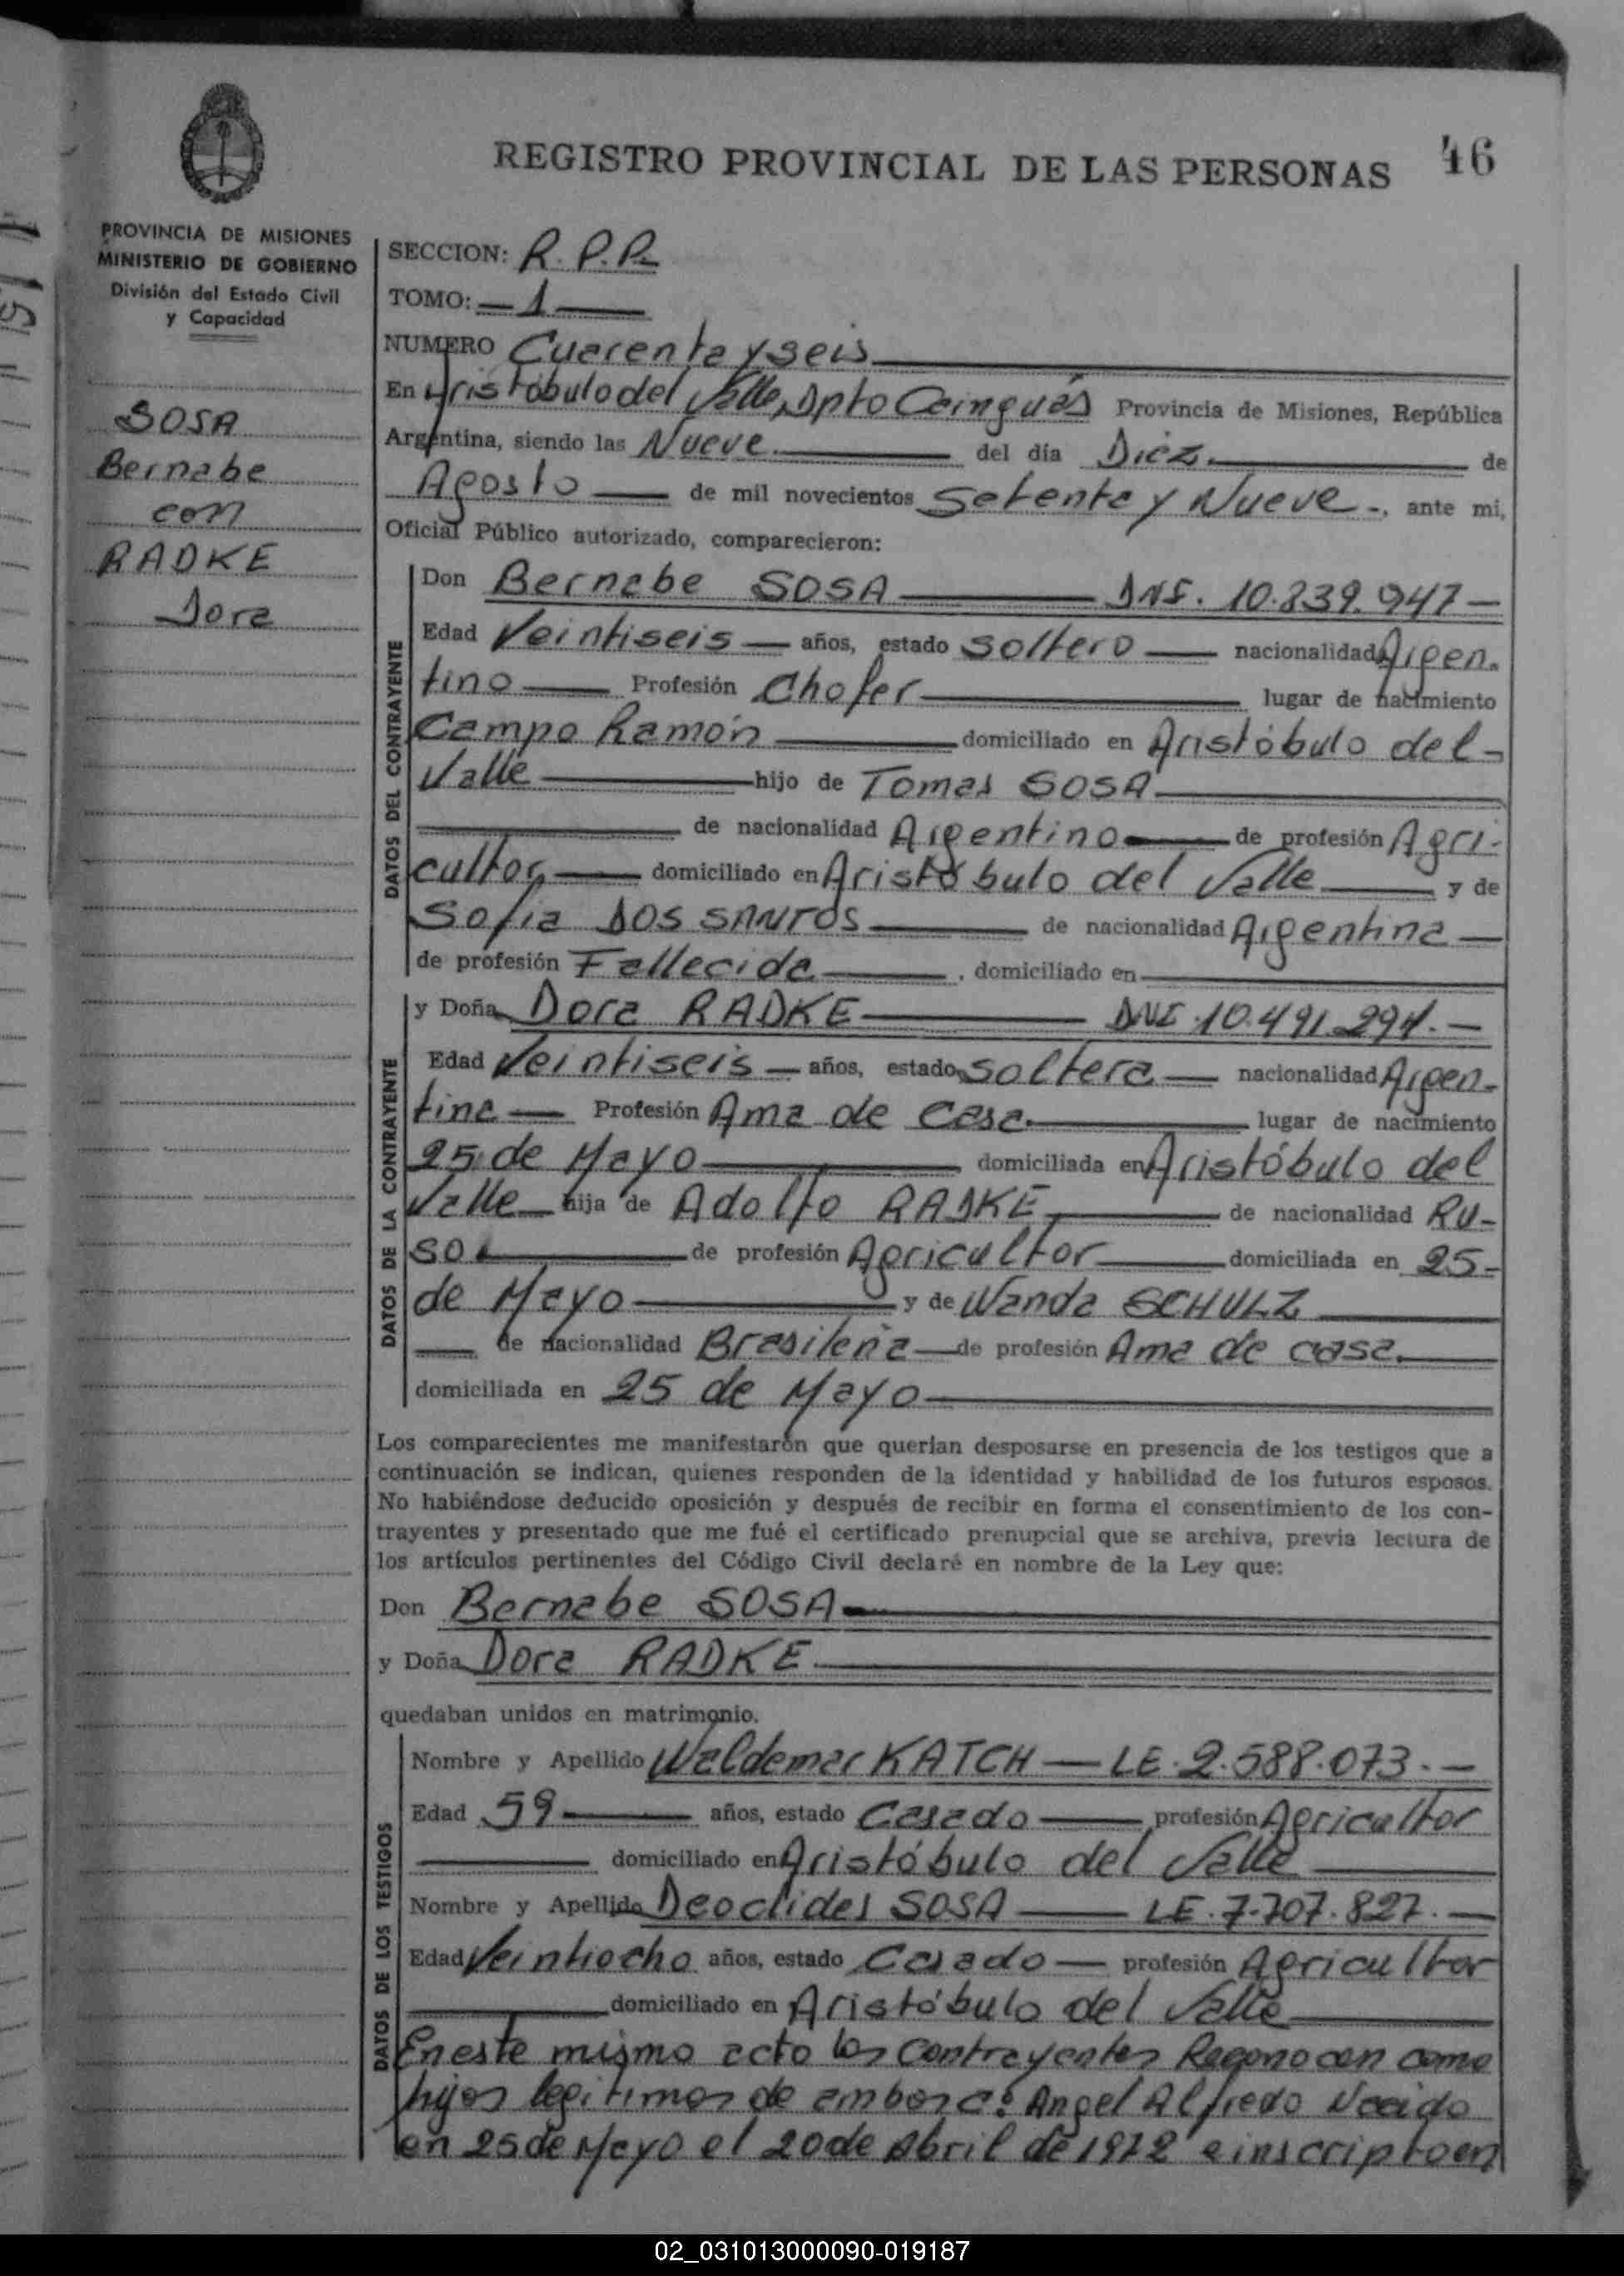 REGISTRO PROVINCIAL DE LAS PERSONAS 46
PROVINCIA DE MISIONES
MINISTERIO DE GOBIERNO
División del Estado Civil
y Capacidad
SOSA
Bernabe
con
RADKE
Dora
SECCION: R.P.P.
TOMO: 1
NUMERO Cuarenta y seis
En Aristóbulo del Valle, Dpto Cainguás Provincia de Misiones, República
Argentina, siendo las Nueve del día Diez de
Agosto de mil novecientos Setenta y Nueve., ante mi,
Oficial Público autorizado, comparecieron:
DATOS DEL CONTRAYENTE
Don Bernabe SOSA DNI. 10.839.947
Edad Veintiseis años, estado soltero nacionalidad Argen-
tino Profesión Chofer lugar de nacimiento
Campo Ramón domiciliado en Aristóbulo del
Valle hijo de Tomas SOSA
de nacionalidad Argentino de profesión Agri-
cultor domiciliado en Aristóbulo del Valle y de
Sofia DOS SANTOS de nacionalidad Argentina
de profesión Fallecida, domiciliado en
DATOS DE LA CONTRAYENTE
y Doña Dora RADKE DNI 10.491.294.
Edad Veintiseis años, estado soltera nacionalidad Argen-
tina Profesión Ama de Casa. lugar de nacimiento
25 de Mayo domiciliada en Aristóbulo del
Valle hija de Adolfo RADKE de nacionalidad Ru-
so. de profesión Agricultor domiciliada en 25-
de Mayo y de Wanda SCHULZ
de nacionalidad Brasileña de profesión Ama de casa.
domiciliada en 25 de Mayo
Los comparecientes me manifestarón que querían desposarse en presencia de los testigos que a
continuación se indican, quienes responden de la identidad y habilidad de los futuros esposos.
No habiéndose deducido oposición y después de recibir en forma el consentimiento de los con-
trayentes y presentado que me fué el certificado prenupcial que se archiva, previa lectura de
los artículos pertinentes del Código Civil declaré en nombre de la Ley que:
Don Bernabe SOSA
y Doña Dora RADKE
quedaban unidos en matrimonio.
DATOS DE LOS TESTIGOS
Nombre y Apellido Waldemar KATCH LE. 2.588.073.
Edad 59 años, estado Casado profesión Agricultor
domiciliado en Aristóbulo del Valle
Nombre y Apellido Deoclides SOSA LE. 7.707.827.
Edad Veintiocho años, estado Casado profesión Agricultor
domiciliado en Aristóbulo del Valle
En este mismo acto los contrayentes Reconocen como
hijos legitimos de ambos a: Angel Alfredo Nacido
en 25 de Mayo el 20 de Abril de 1972 e inscripto en
02_031013000090-019187